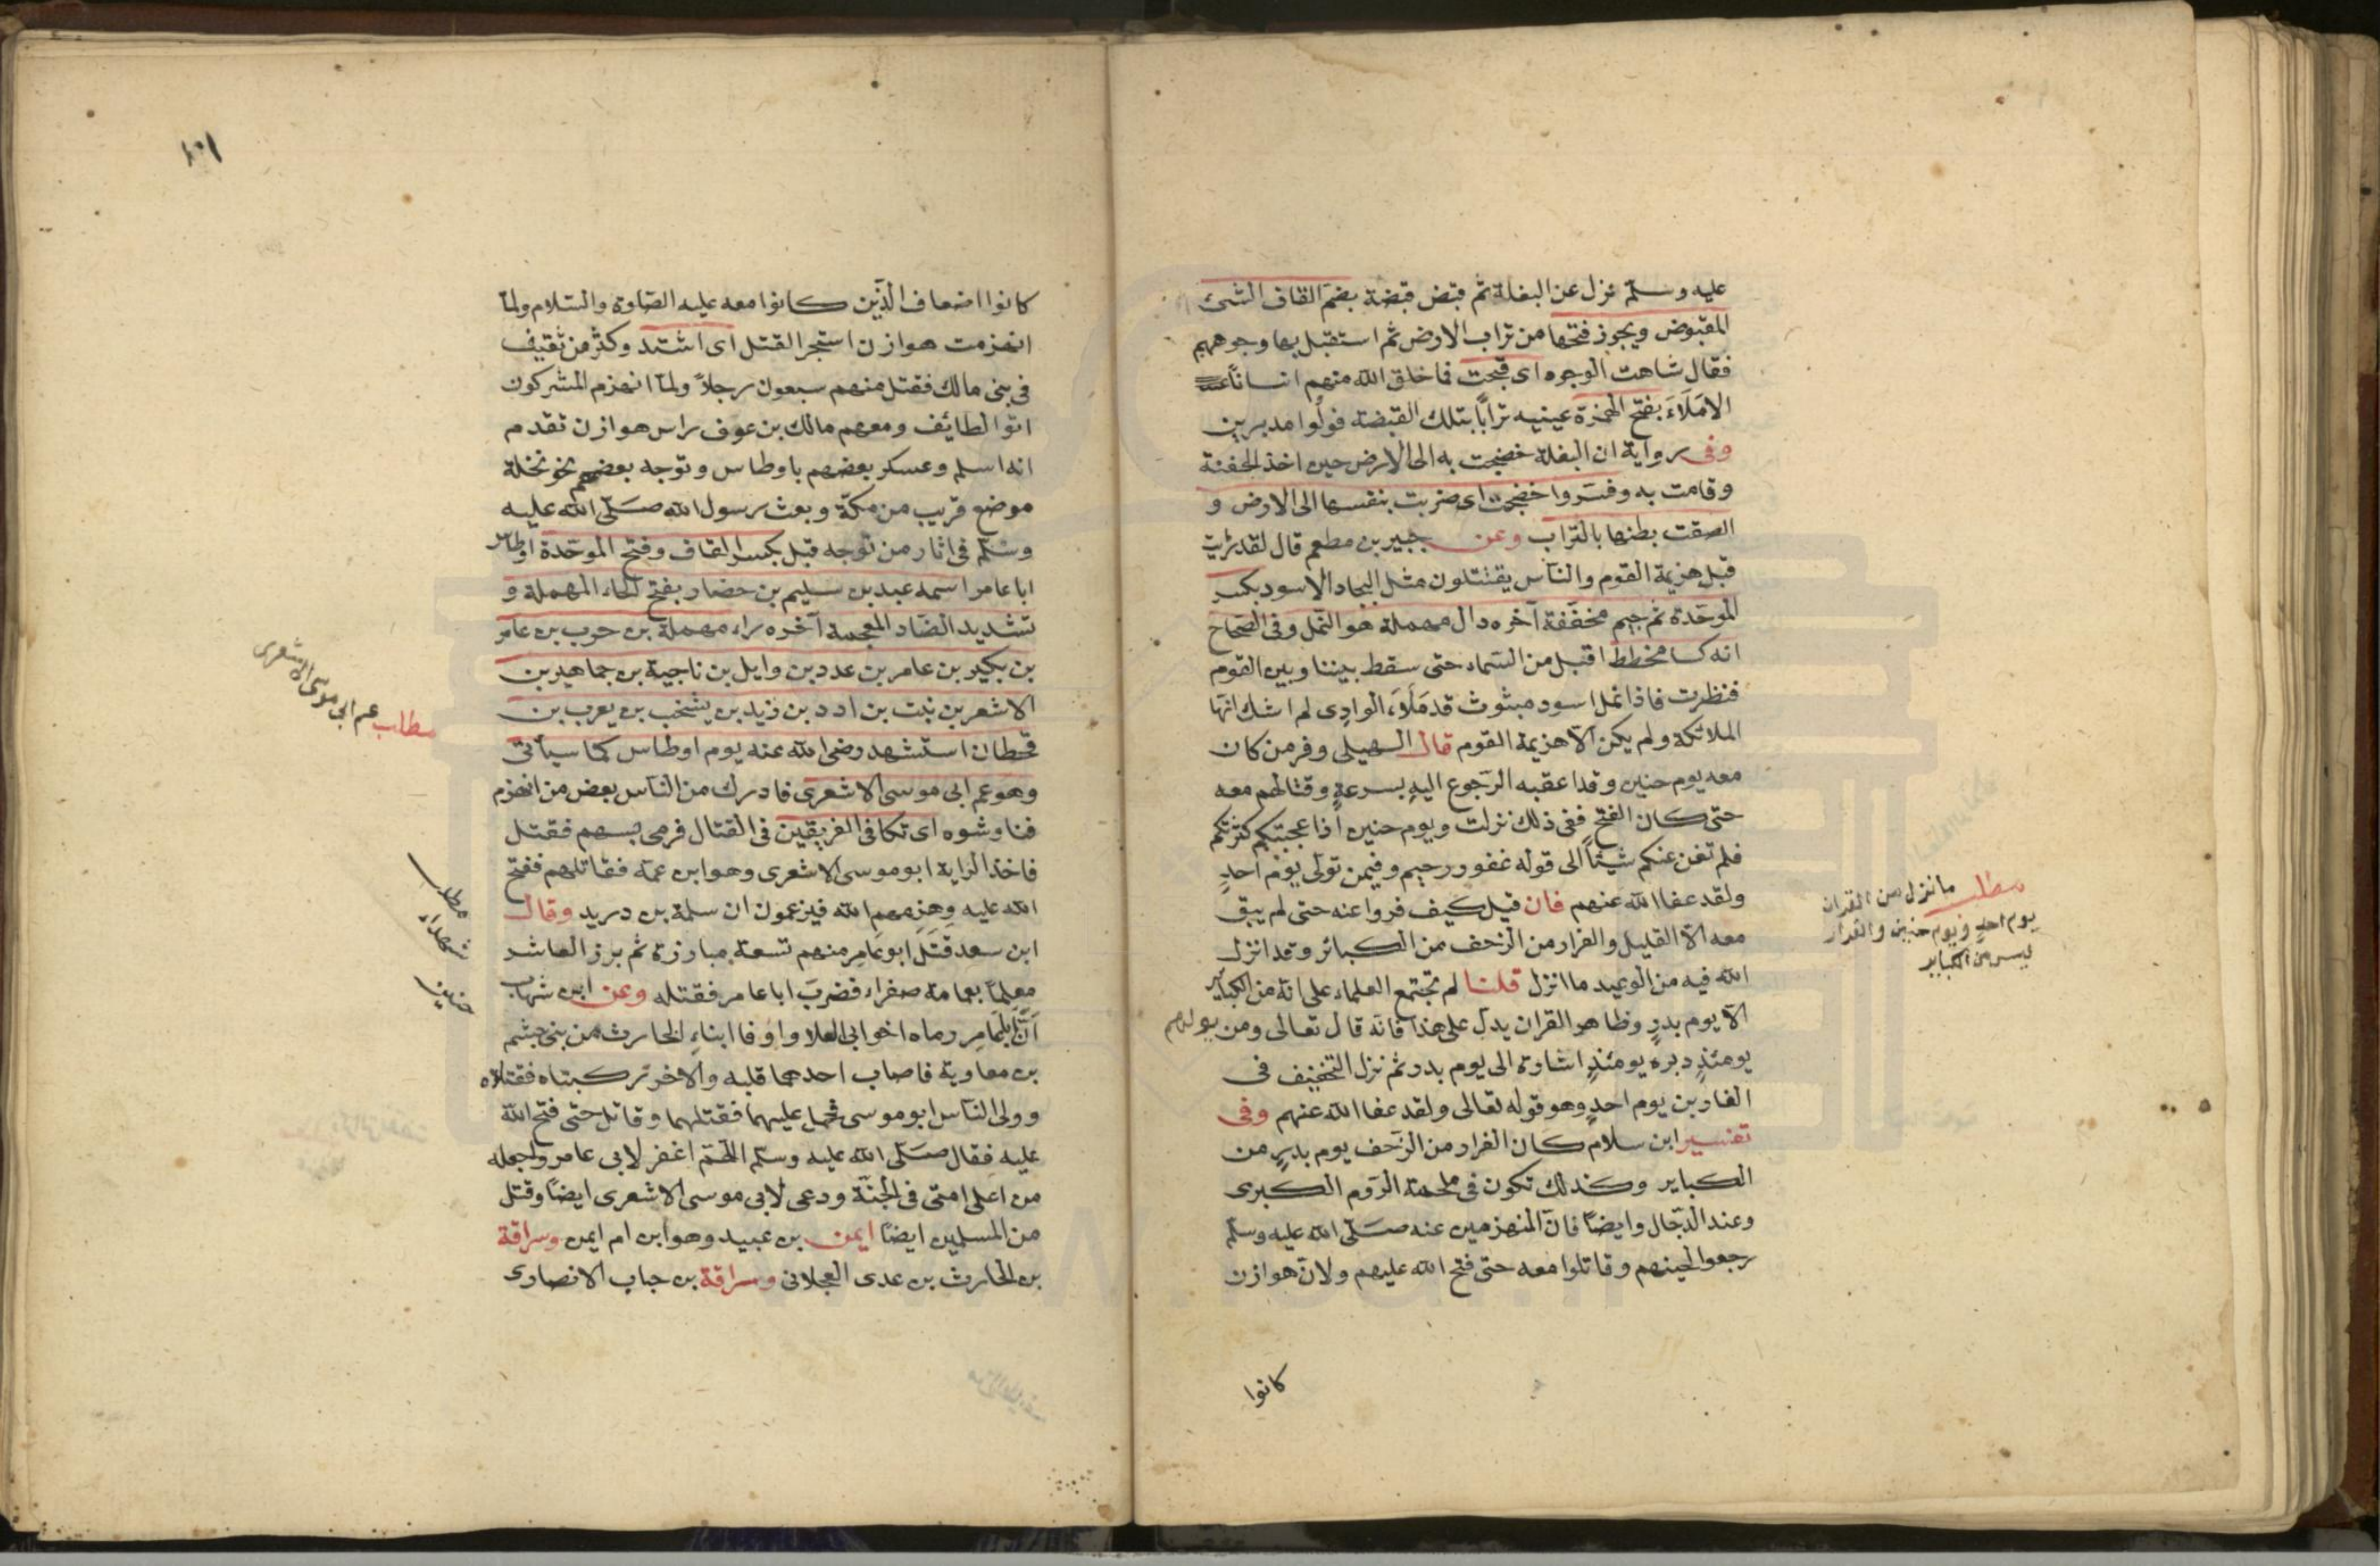 عليه وسلم نزل عن البغلة ثم قبض قبضة بضم القاف الشئ
المقبوض ويجوز فتحها من تراب الارض ثم استقبل بها وجوههم
فقال شاهت الوجوه اى قبحت فما خلق الله منهم انسانا
الا مَلَاءَ بفتح الهمزة عينيه ترابًا بتلك القبضة فولوا مدبرين
وفى رواية ان البغلة خضجت به الى الارض حين اخذ الحفنة
وقامت به وفسروا خضجت اى ضربت بنفسها الى الارض و
الصقت بطنها بالتراب وعن جبير بن مطعم قال لقد رئيت
قبل هزيمة القوم والناس يقتتلون مثل البجاد الاسود بكسر
الموحّدة ثم جيم مخفّفة آخره دال مهملة هو النمل وفى الصّحاح
انه كسا مخطط اقبل من السماء حتى سقط بيننا وبين القوم
فنظرت فاذا نمل اسود مبثوث قد مَلَاءَ الوادى لم اشك انها
الملائكة ولم يكن الّا هزيمة القوم قال السهيلى وفر من كان
معه يوم حنين وقد اعقبه الرجوع اليه بسرعةٍ وقتالهم معه
حتى كان الفتح ففى ذلك نزلت ويوم حنين اذ اعجبتكم كثرتكم
فلم تغن عنكم شيئاً الى قوله غفور رحيم وفيمن تولى يوم احدٍ
ولقد عفا الله عنهم فان قيل كيف فروا عنه حتى لم يبق
معه الّا القليل والفرار من الزحف من الكبائر وقد انزل
الله فيه من الوعيد ما انزل قلنا لم تجتمع العلماء على انه من الكباير
الّا يوم بدرٍ وظاهر القران يدل على هذا فانه قال تعالى ومن يولهم
يومئذٍ دبره يومئذٍ اشارة الى يوم بدر ثم نزل التخفيف فى
الفارين يوم احدٍ وهو قوله تعالى ولقد عفا الله عنهم وفى
تفسير ابن سلام كان الفرار من الزحف يوم بدرٍ من
الكباير وكذلك تكون فى ملحمة الروم الكبرى
وعند الدّجّال وايضًا فانّ المنهزمين عنه صلى الله عليه وسلم
رجعوا لحينهم وقاتلوا معه حتى فتح الله عليهم ولان هوازن
كانوا
مطلب ما نزل من القران
يوم احدٍ ويوم حنين والفرار
ليس من الكباير
كانوا اضعاف الذين كانوا معه عليه الصلوة والسلام ولما
انهزمت هوازن استحر القتل اى اشتد وكثر من ثقيف
فى بنى مالك فقتل منهم سبعون رجلاً ولما انهزم المشركون
اتوا الطائف ومعهم مالك بن عوف راس هوازن تقدم
انه اسلم وعسكر بعضهم باوطاس وتوجه بعضهم نحو نخلة
موضع قريب من مكة وبعث رسول الله صلى الله عليه
وسلم فى اثار من توجه قبل بكسر القاف وفتح الموحّدة اوطاس
ابا عامر اسمه عبد بن سليم بن حضار بفتح الحاء المهملة و
تشديد الضاد المعجمة آخره راء مهملة بن حرب بن عامر
بن بكير بن عامر بن عدد بن وايل بن ناجية بن جماهير بن
الاشعر بن نبت بن ادد بن زيد بن يشخب بن يعرب بن
قحطان استشهد رضى الله عنه يوم اوطاس كما سياتى
وهو عم ابى موسى الاشعرى فادرك من الناس بعض من انهزم
فناوشوه اى تكافى الفريقين فى القتال فرمى بسهم فقتل
فاخذ الراية ابو موسى الاشعرى وهو ابن عمه فقاتلهم ففتح
الله عليه وهزمهم الله فيزعمون ان سلمة بن دريد وقال
ابن سعد قتل ابو عامر منهم تسعة مبارزة ثم برز العاشر
معلماً بعمامة صفراء فضرب ابا عامر فقتله وعن ابن
رماه اخو ابى العلا واوفا ابناء الحارث من بنى جشم
بن معاوية فاصاب احدهما قلبه والاخر ركبتاه فقتلاه
وولى الناس ابو موسى فحمل عليهما فقتلهما وقاتل حتى فتح الله
عليه فقال صلى الله عليه وسلم اللهم اغفر لابى عامر واجعله
من اعلى امتى فى الجنة ودعى لابى موسى الاشعرى ايضًا وقتل
من المسلمين ايضًا ايمن بن عبيد وهو ابن ام ايمن وسراقة
بن الحارث بن عدى العجلانى وسراقة بن حباب الانصارى
مطلب عم ابى موسى الاشعرى
مطلب
شهداء
حنين